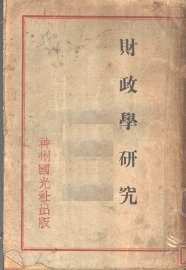 財政學研究
神州國光社出版